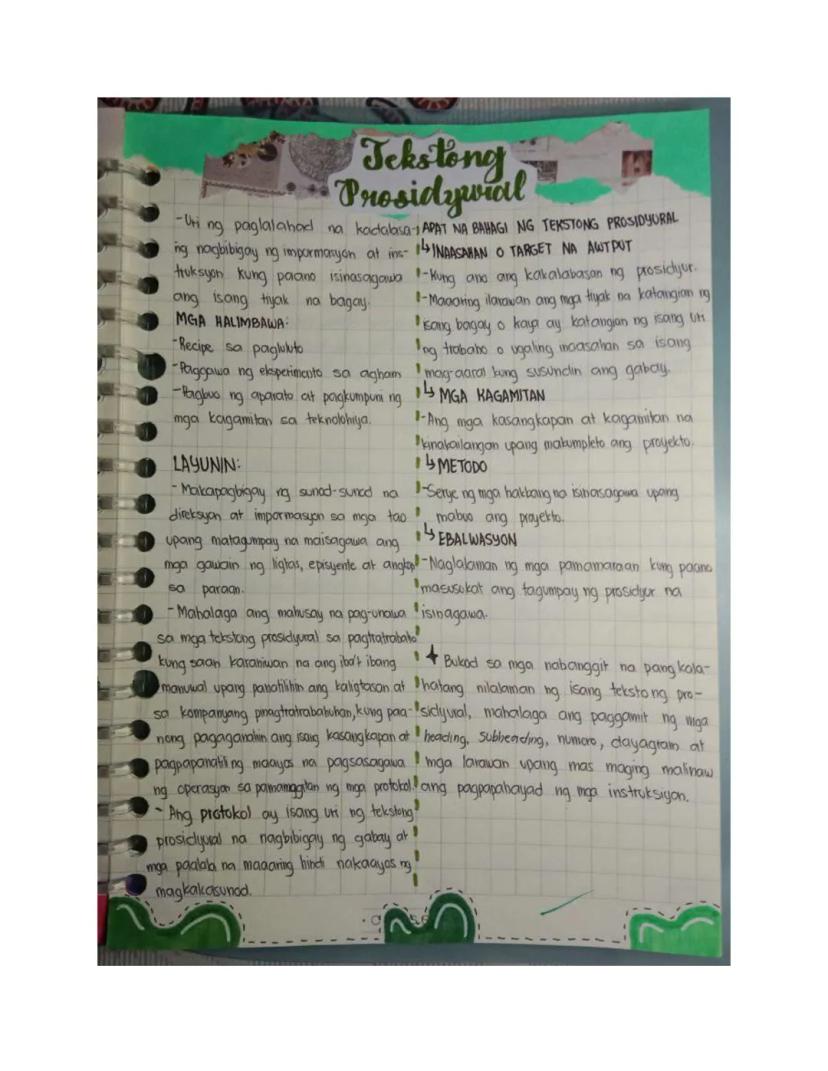 Tekstong
Prosidyural
-Uri ng paglalahad na kadalasa-
ing nagbibigay ng impormasyon at ins-
truksyon kung paano isinasagawa
ang isang tiyak na bagay.
MGA HALIMBAWA:
-Recipe sa pagluluto
-Paggawa ng eksperimento sa agham
-Pagbuo ng aparato at pagkumpuni ng
mga kagamitan sa teknolohiya.
LAYUNIN:
- Makapagbigay ng sunod-sunod na
direksyon at impormasyon sa mga tao
upang matagumpay na maisagawa ang
mga gawain ng ligtas, episyente at angkop
sa paraan.
- Mahalaga ang mahusay na pag-unawa
sa mga tekstong prosidyural sa pagtratrabaho
kung saan karaniwan na ang iba't ibang
manuwal upang panatilihin ang kaligtasan at
sa kompanyang pinagtratrabahuhan, kung paa-
nong pagaganahin ang isang kasangkapan at
pagpapanatili ng maayos na pagsasagawa
ng operasyon sa pamamagitan ng mga protokol.
- Ang protokol ay isang uri ng tekstong
prosidyural na nagbibigay ng gabay at
mga paalala na maaaring hindi nakaayos ng
magkakasunod.
APAT NA BAHAGI NG TEKSTONG PROSIDYURAL
↳ INAASAHAN O TARGET NA AWTPUT
-Kung ano ang kakalabasan ng prosidyur.
-Maaaring ilarawan ang mga tiyak na katangian ng
isang bagay o kaya ay katangian ng isang uri
ng trabaho o ugaling maasahan sa isang
mag-aaral kung susundin ang gabay.
↳ MGA KAGAMITAN
-Ang mga kasangkapan at kagamitan na
kinakailangan upang makumpleto ang proyekto.
↳ METODO
-Serye ng mga hakbang na isinasagawa upang
mabuo ang proyekto.
↳ EBALWASYON
-Naglalaman ng mga pamamaraan kung paano
masusukat ang tagumpay ng prosidyur na
isinagawa.
Bukod sa mga nabanggit na pangkala-
hatang nilalaman ng isang tekstong pro-
sidyural, mahalaga ang paggamit ng mga
heading, subheading, numero, dayagram at
mga larawan upang mas maging malinaw
ang pagpapahayad ng mga instruksiyon.